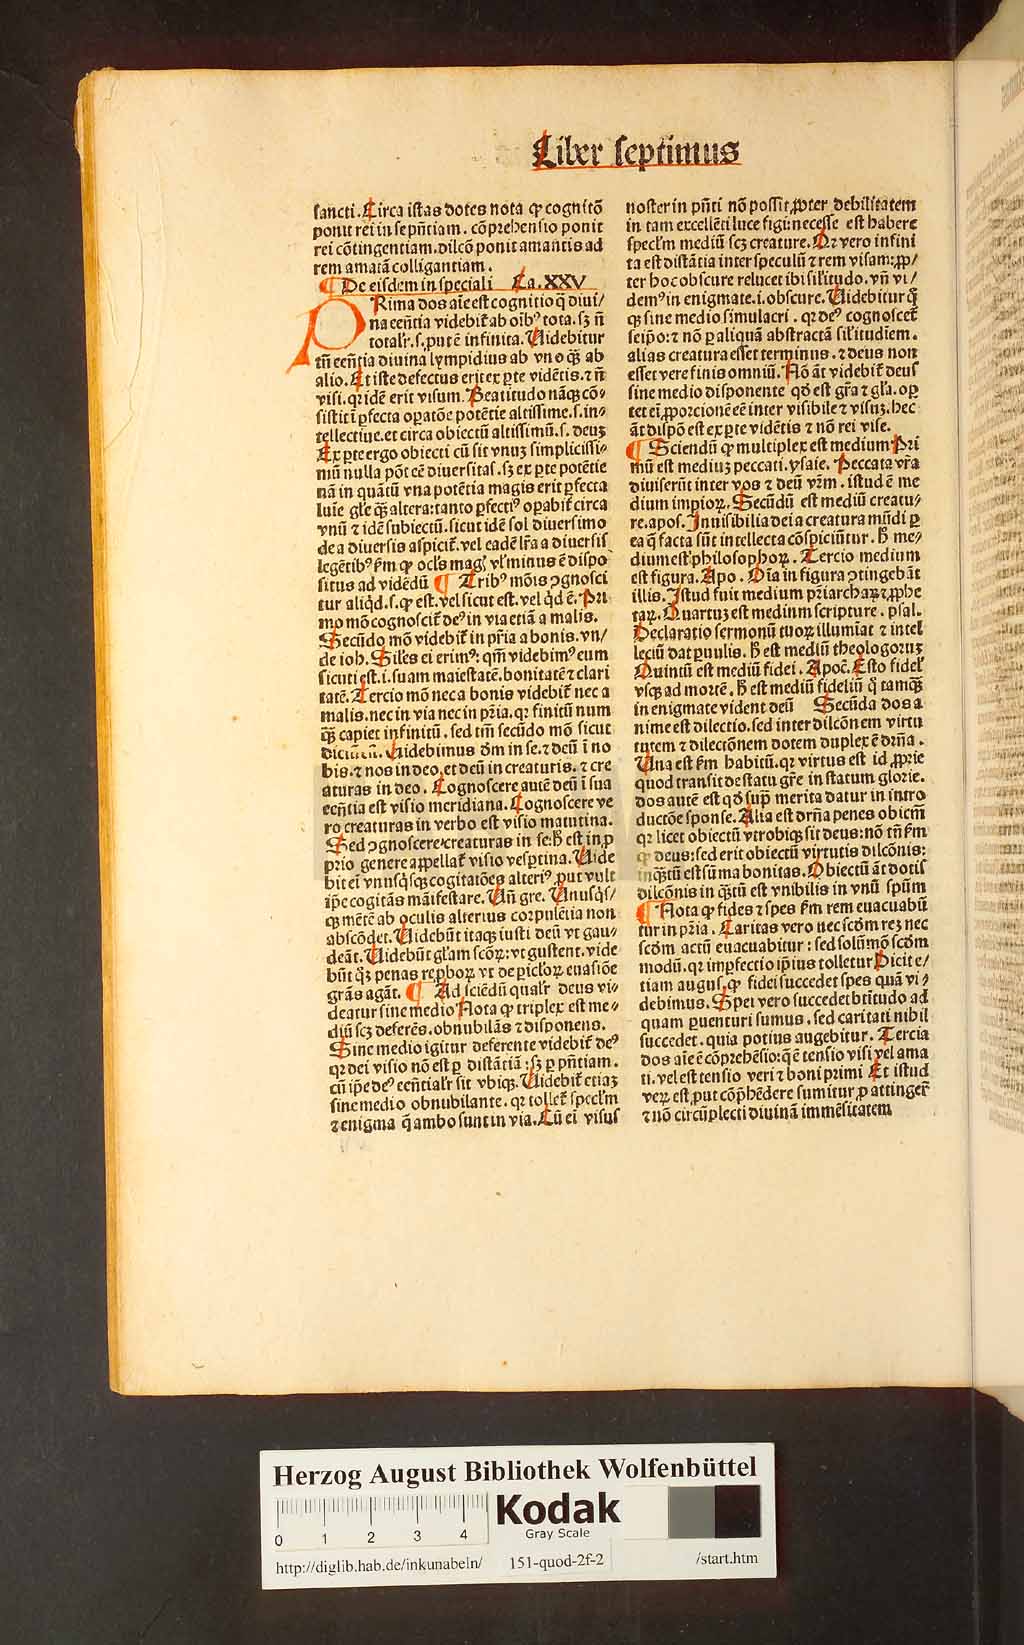 Liber septimus
sancti. Circa istas dotes nota ꝙ cognitō
ponit rei in se pn̄tiam. cōprehensio ponit
rei cōtingentiam. dilcō ponit amantis ad
rem amatā colligantiam.
¶ De eisdem in speciali Ca. XXV
PRima dos aīe est cognitio q̄ diui/
na eēntia videbit̄ ab oīb⁹ tota. sꝫ n̄
totalr̄. s. put ē infinita. Uidebitur
tn̄ eēn̄tia diuina lympidius ab vno qꝫ̄ ab
alio. Et iste defectus erit ex ꝑte vidētis. ⁊ n̄
visi. qꝛ idē erit visum. Beatitudo nāqꝫ cō-
sistit ī ꝑfecta oꝑatōe potētie altissime. s. in-
tellectiue. et circa obiectū altissimū. s. deuꝫ
Ex ꝑte ergo obiecti cū sit vnuꝫ simplicissi-
mū nulla pōt eē diuersitas. sꝫ ex ꝑte potētie
nā in quātū vna potētia magis erit ꝑfecta
luīe gl̄e qꝫ̄ altera: tanto ꝑfecti⁹ oꝑabit̄ circa
vnū ⁊ idē subiectū. sicut idē sol diuersimo
de a diuersis aspicit̄. vel eadē lr̄a a diuersis
legētib⁹ ẜm ꝙ ocl̄s magꝭ vl̓ minus ē dispo
situs ad vidēdū ¶ Trib⁹ mōis ꝯgnosci
tur aliqd̓. s. ꝙ est. vel sicut est. vel qd̓ ē. Pri
mo mō cognoscit̄ de⁹ in via etiā a malis.
Secūdo mō videbit̄ in pr̄ia a bonis. vn/
de ioh. Sil̓es ei erim⁹: qm̄ videbim⁹ eum
sicuti est. i. suam maiestatē. bonitatē ⁊ clari
tatē. Tercio mō nec a bonis videbit̄ nec a
malis. nec in via nec in pr̄ia. qꝛ finitū num
qꝫ̄ capiet infinitū. sed tm̄ secūdo mō sicut
dictū ē. Uidebimus dm̄ in se. ⁊ deū ī no
bis. ⁊ nos in deo. et deū in creaturis. ⁊ cre
aturas in deo. Cognoscere autē deū ī sua
eēn̄tia est visio meridiana. Cognoscere ve
ro creaturas in verbo est visio matutina.
Sed ꝯgnoscere creaturas in se: h̄ est in ꝓ
prio genere appellat̄ visio vesꝑtina. Uide
bit ei vnusqs̓qꝫ cogitatōes alteri⁹ put vult
ip̄e cogitās māifestare. Un̄ gre. Unusqs̓/
qꝫ mētē ab oculis alterius corpulētia non
abscōdet. Uidebūt itaqꝫ iusti deū vt gau/
deāt. Uidebūt gl̓am scōꝝ: vt gustent. vide
būt qꝫ̓ penas reꝓboꝝ vt de ꝑicl̓oꝝ euasiōe
grās agāt. ¶ Ad sciēdū qualr̄ deus vi/
deatur sine medio Nota ꝙ triplex est me/
diū scꝫ deferēs. obnubilās ⁊ disponens.
Sine medio igitur deferente videbit̄ de⁹
qꝛ dei visio nō est ꝑ distātiā: sꝫ ꝑ pn̄tiam.
cū ip̄e de⁹ eēntialr̄ sit vbiqꝫ. Uidebit̄ etiaꝫ
sine medio obnubilante. qꝛ tollet̄ specl̄m
⁊ enigma q̄ ambo sunt in via. Cū ei visus
noster in pn̄ti nō possit ꝓpter debilitatem
in tam excellēti luce figi: necesse est habere
specl̄m mediū scꝫ creature. Qꝛ vero infini
ta est distātia inter speculū ⁊ rem visam: ꝓp/
ter hoc obscure relucet ibi sil̓itudo. vn̄ vi/
dem⁹ in enigmate. i. obscure. Uidebitur q̄
qꝫ sine medio simulacri. qꝛ de⁹ cognoscet̄
seip̄o: ⁊ nō ꝑ aliquā abstractā sil̓itudīem.
alias creatura esset terminus. ⁊ deus non
esset vere finis omniū. Nō āt videbit̄ deus
sine medio disponente qd̓ est gr̄a ⁊ gl̓a. oꝑ
tet ei ꝓporcionē eē inter visibile ⁊ visuꝫ. hec
āt dispō est ex ꝑte vidētis ⁊ nō rei vise.
¶ Sciendū ꝙ multiplex est medium Pri
mū est mediuꝫ peccati. ysaie. Peccata vr̄a
diuiserūt inter vos ⁊ deū vr̄m. istud ē me
dium impioꝝ. Secūdū est mediū creatu/
re. apos. Inuisibilia dei a creatura mūdi ꝑ
ea q̄ facta sūt intellecta cōspiciūtur. h̄ me/
dium est philosophoꝝ. Tercio medium
est figura. Apo. Oīa in figura ꝯtingebāt
illis. Istud fuit medium pr̄iarchaꝝ ⁊ ꝓphe
taꝝ. Quartuꝫ est medium scripture. psal.
Declaratio sermonū tuoꝝ illumīat ⁊ intel
lectū dat ꝑuulis. h̄ est mediū theologoruꝫ
Quintū est mediū fidei. Apoc̄. Esto fidel̓
vsqꝫ ad mortē. h̄ est mediū fideliū q̄ tamqꝫ̄
in enigmate vident deū Secūda dos a
nime est dilectio. sed inter dilcōnem virtu
tutem ⁊ dilectōnem dotem duplex ē dr̄na.
Una est ẜm habitū. qꝛ virtus est id ꝓprie
quod transit de statu gr̄e in statum glorie.
dos autē est qd̓ suꝑ merita datur in intro
ductōe sponse. Alia est dr̄na penes obicm̄
qꝛ licet obiectū vtrobiqꝫ sit deus: nō tn̄ ẜm
ꝙ deus: sed erit obiectū virtutis dilcōnis:
inqꝫ̄tū est sūma bonitas. Obiectū āt dotis
dilcōnis in qꝫ̄tū est vnibilis in vnū spūm
¶ Nota ꝙ fides ⁊ spes ẜm rem euacuabū
tur in pr̄ia. Caritas vero nec scd̓m rez nec
scd̓m actū euacuabitur: sed solū mō scd̓m
modū. qꝛ imꝑfectio ip̄ius tolletur Dicit e/
tiam augus. ꝙ fidei succedet spes quā vi/
debimus. Spei vero succedet btītudo ad
quam ꝑuenturi sumus. sed caritati nihil
succedet. quia potius augebitur. Tercia
dos aīe ē cōp̄rehēsio: q̄ ē tensio visi vel ama
ti. vel est tensio veri ⁊ boni primi Et istud
veꝝ est. put cōp̄hēdere sumitur ꝓ attingere
⁊ nō circūplecti diuinā immēsitatem
Herzog August Bibliothek Wolfenbüttel
0 1 2 3 4
Kodak
Gray Scale
http://diglib.hab.de/inkunabeln/ 151-quod-2f-2 /start.htm